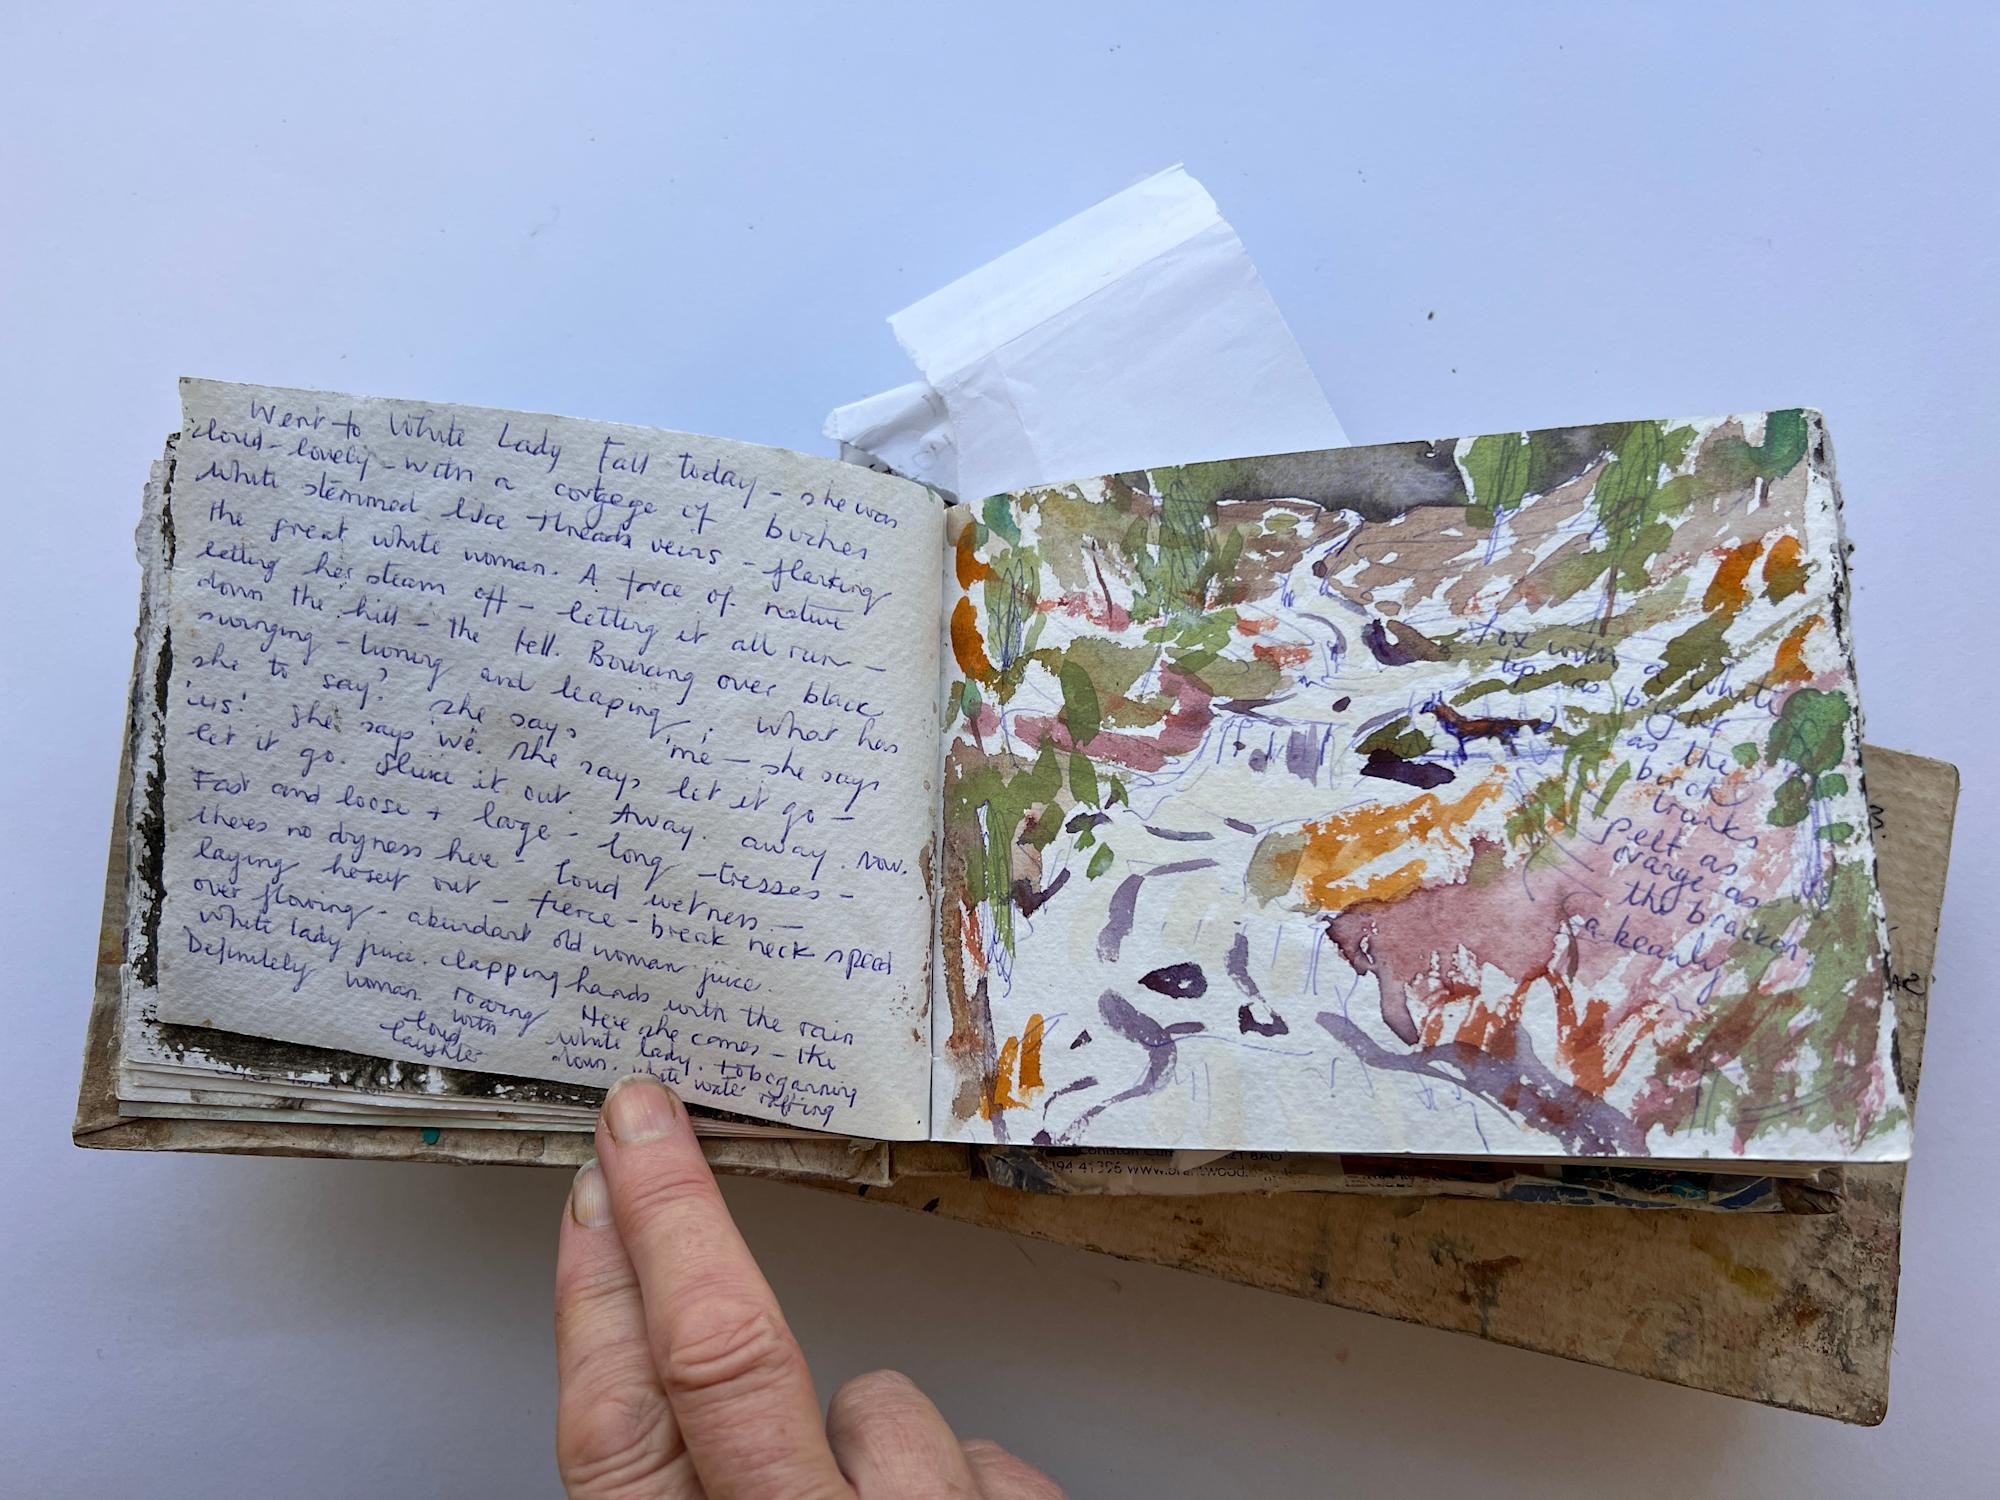 Went to White Lady Fall today – she was
loud – lovely – with a cortgege of birches
white stemmed like threads veins – flanking
the great white woman. A force of nature
letting her steam off – letting it all run –
down the hill – the fell. Bouncing over black
swinging – and leaping, what has
she to say? she says 'me – she says
'us! she says 'we. She says let it go –
let it go. Sluice it out. Away. away. Now.
Fast and loose + large – long – tresses –
theres no dryness here – loud wetness –
laying herself out – fierce – break neck speed
over flowing – abundant old woman juice.
White lady juice. clapping hands with the rain
Definitely woman. roaring
with
loud
laughter
Here she comes – the
white lady. tobogganing
down. white water rafting
Fox with a white
tip as
bright
as the
birch
trunks
pelt as
orange as
the bracken.
a beauty